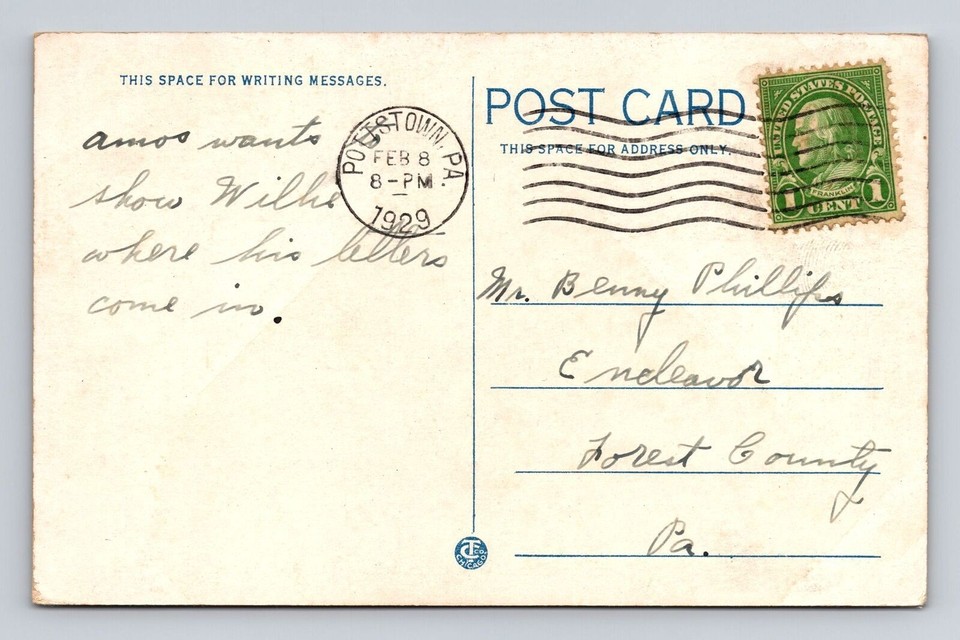 THIS SPACE FOR WRITING MESSAGES.
amos wants
show Willie
where his letters
come in.
POTTSTOWN, PA.
FEB 8
8-PM
1929
POST CARD
THIS SPACE FOR ADDRESS ONLY.
UNITED STATES POSTAGE
FRANKLIN
1 CENT 1
Mr. Benny Phillips
Endeavor
Forest County
Pa.
CT CO.
CHICAGO